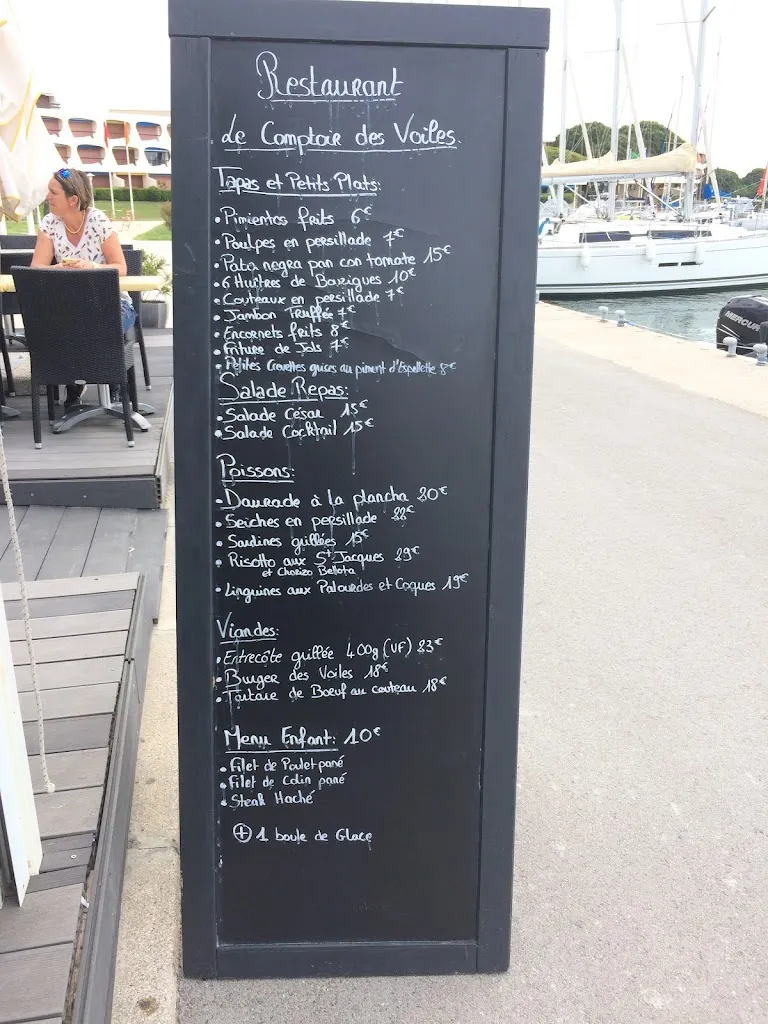 Restaurant
Le Comptoir des Voiles.
Tapas et Petits Plats:
• Pimientos frits 6€
• Poulpes en persillade 7€
• Pata negra pan con tomate 15€
• 6 Huîtres de Bouzigues 10€
• Couteaux en persillade 7€
• Jambon Truffée 7€
• Encornets frits 8€
• Friture de Jols 7€
• Petites Crevettes grises au piment d'Espellette 8€
Salade Repas:
• Salade César 15€
• Salade Cocktail 15€
Poissons:
• Daurade à la plancha 20€
• Seiches en persillade
• Sardines grillées 15€
• Risotto aux St Jacques 29€
et Chorizo Bellota
• Linguines aux Palourdes et Coques 19€
Viandes:
• Entrecôte grillée 400g (VF) 23€
• Burger des Voiles 18€
• Tartare de Boeuf au couteau 18€
Menu Enfant: 10€
• Filet de Poulet pané
• Filet de Colin pané
• Steak Haché
⊕ 1 boule de Glace
MERCURY